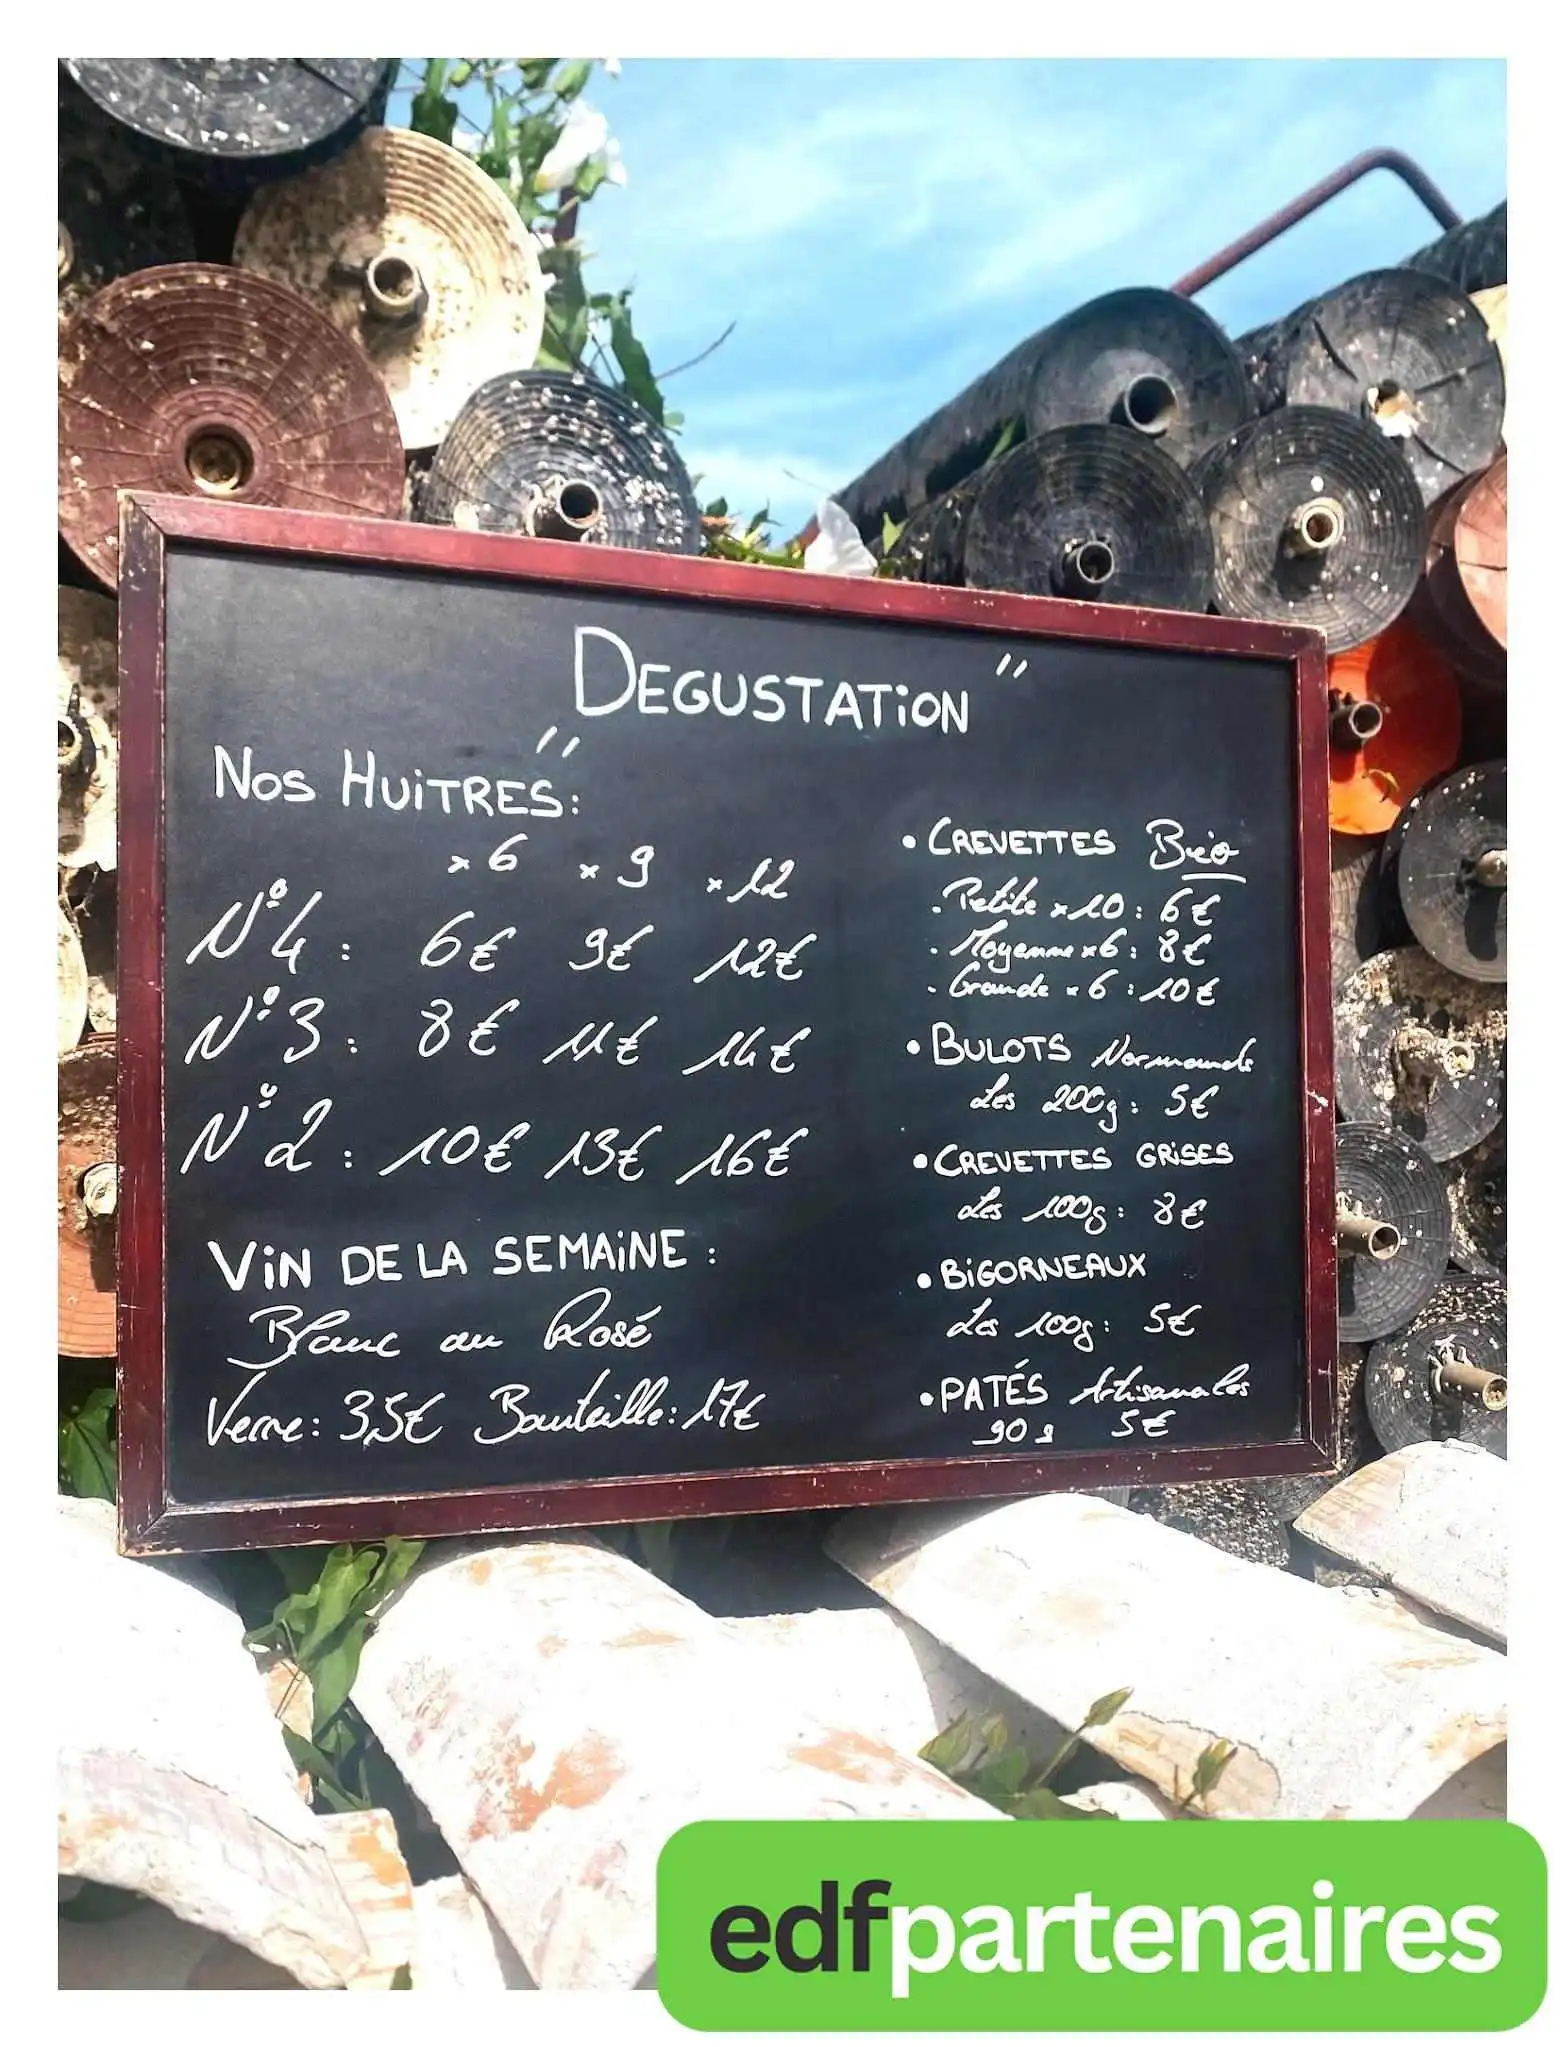 " DEGUSTATiON "
Nos HUiTRES:
x 6 x 9 x 12
N°4 : 6€ 9€ 12€
N°3 : 8€ 11€ 14€
N°2 : 10€ 13€ 16€
ViN DE LA SEMAiNE :
Blanc ou Rosé
Verre : 3,5€ Bouteille : 17€
• CREVETTES Bio
. Petite x10 : 6€
. Moyenne x6 : 8€
. Grande x6 : 10€
• BULOTS Normands
Les 200g : 5€
• CREVETTES GRiSES
Les 100g : 8€
• BiGORNEAUX
Les 100g : 5€
• PATÉS Artisanales
90g 5€
edfpartenaires